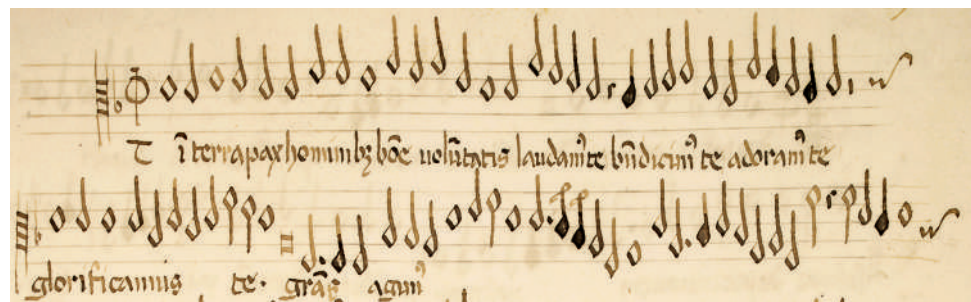 T ī terra pax hominibꝫ bōe volūtatis laudam᷒te bn̄dicim᷒ te adoram᷒ te
glorificamus te. grāꝝ agim᷒